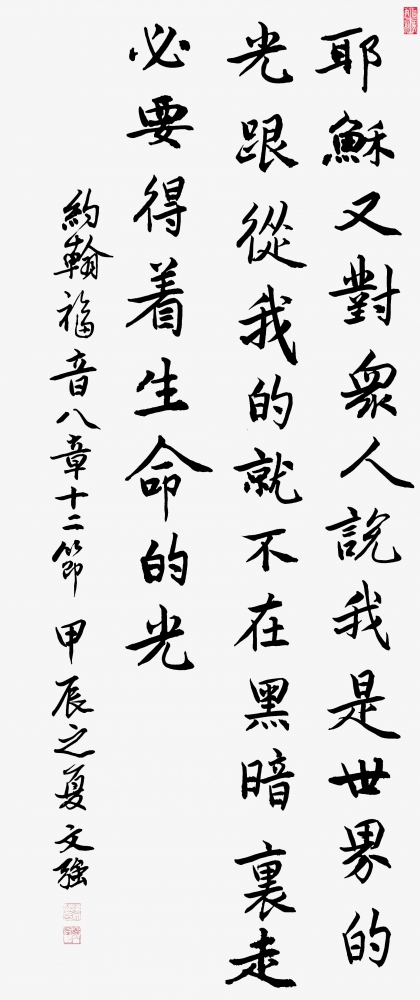 耶穌又對衆人說我是世界的
光跟從我的就不在黑暗裏走
必要得着生命的光
約翰福音八章十二節 甲辰之夏文強